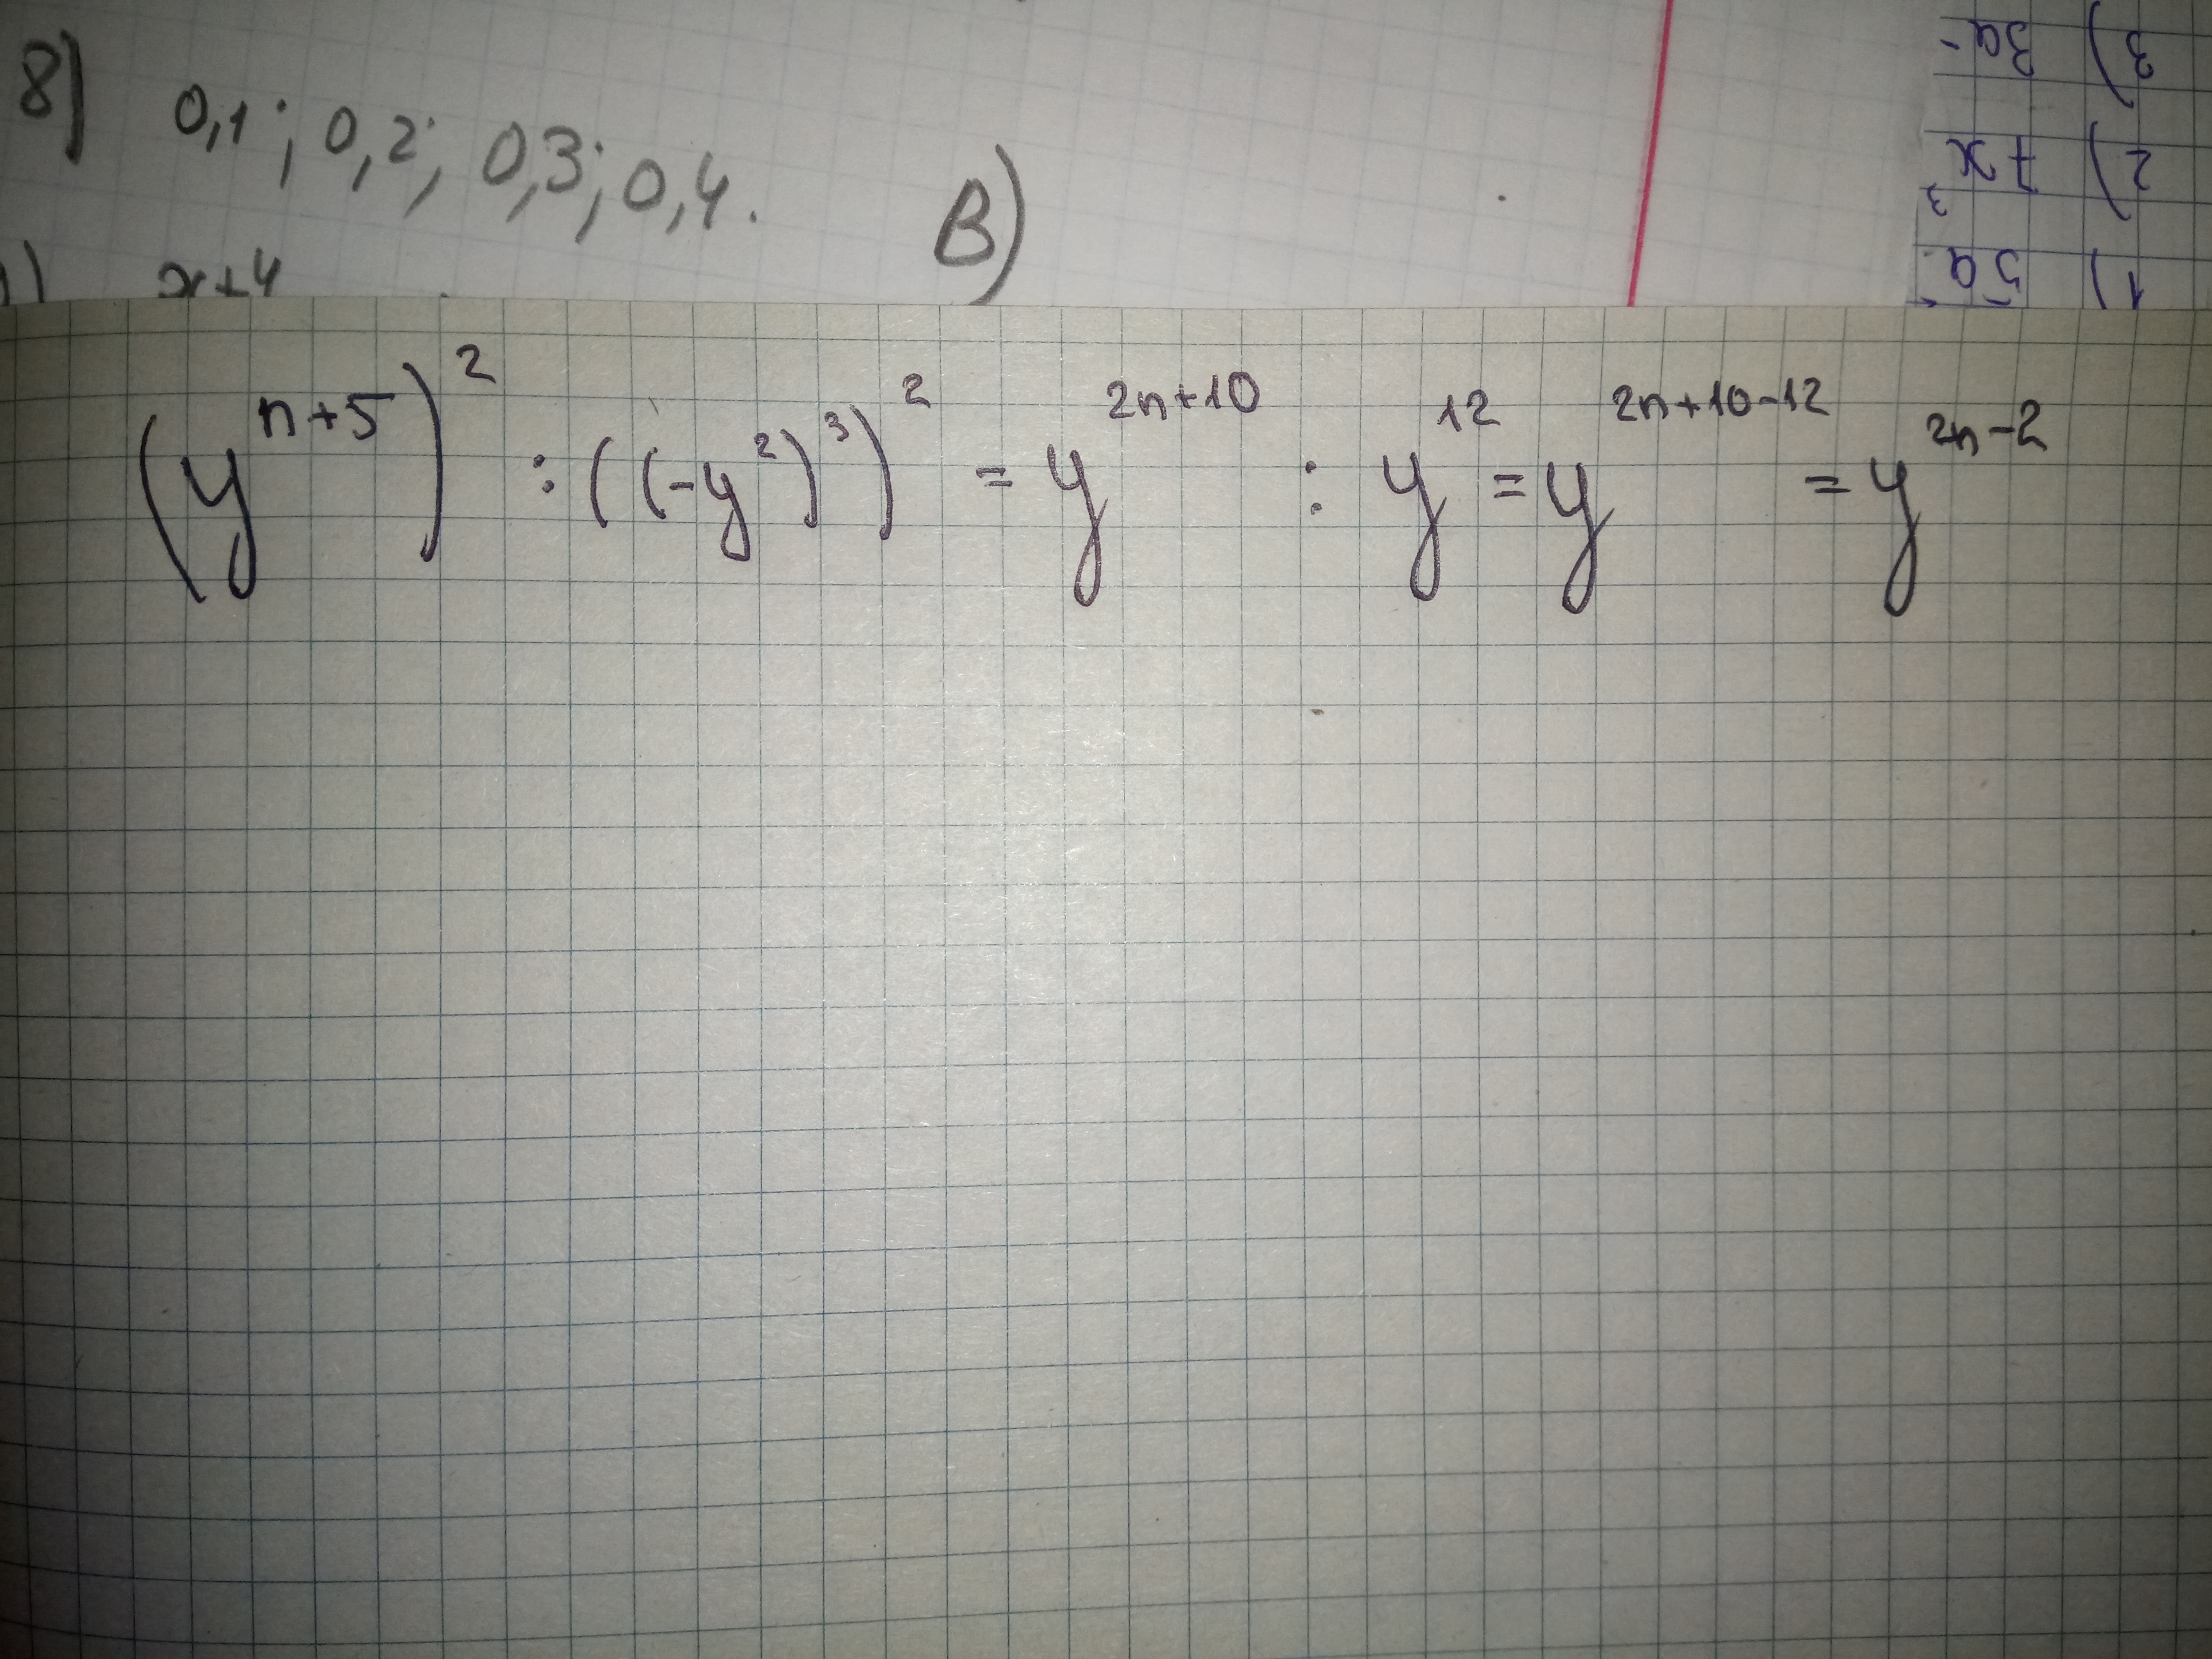 8) 0,1; 0,2; 0,3; 0,4. В)
x+4
3) 3a
2) 7x
1) 5a
(y^{n+5})^2 : ((-y^2)^3)^2 = y^{2n+10} : y^{12} = y^{2n+10-12} = y^{2n-2}